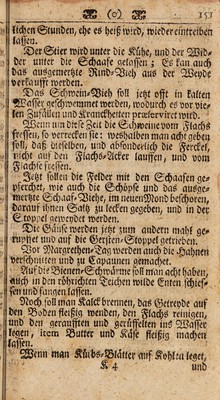 (o) 151
lichen Stunden, ehe es heiß wird, wieder eintreiben
lassen.
Der Stier wird unter die Kühe, und der Wid-
der unter die Schaafe gelassen; Es kan auch
das ausgemertzte Rind-Vieh aus der Weyde
verkaufft werden.
Das Schwein-Vieh soll jetzt offt in kalten
Wasser geschwemmet werden, wodurch es vor vie-
len Zufällen und Kranckheiten præservirt wird.
Wenn um diese Zeit die Schweine vom Flachß
fressen, so verrecken sie; weshalben man acht geben
soll, daß dieselben, und absonderlich die Ferckel,
nicht an den Flachs-Acker lauffen, und vom
Flachse fressen.
Jetzt sollen die Felder mit den Schaafen ge-
pferchet, wie auch die Schöpse und das ausge-
mertzte Schaaf-Vieh, im neuen Mond beschoren,
darauf ihnen Saltz zu lecken gegeben, und in der
Stoppel geweydet werden.
Die Gänse werden jetzt zum andern mahl ge-
rupffet und auf die Gersten-Stoppel getrieben.
Vor Margarethen-Tag werden auch die Hahnen
verschnitten und zu Capaunen gemachet.
Auf die Bienen-Schwärme soll man acht haben,
auch in den röhrichten Teichen wilde Enten schies-
sen und fangen lassen.
Noch soll man Kalck brennen, das Getreyde auf
den Boden fleißig wenden, den Flachs reinigen,
und den geraufften und gerüffelten ins Wasser
legen, item Butter und Käse fleißig machen
lassen.
Wenn man Kürbs-Blätter auf Kohlen leget,
K 4 und